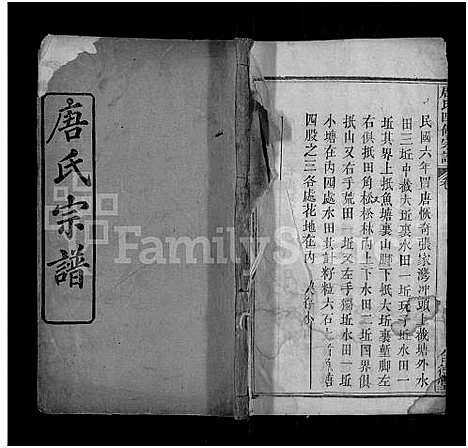 唐氏宗譜
民國六年買唐恢奇張家灣冲頭上截塘外水
田三坵中截夫坵裏水田一坵玩子坵水田一
坵其界上抵魚塘裏山腳下抵大坵裏塹腳左
右俱抵田角松松林內上下水田二坵四界俱
抵山又右手荒田一坵又左手獨坵水田一坵
小塘在內四處水田共計籽粒六石
四股之三各處花地在內
FamilyS